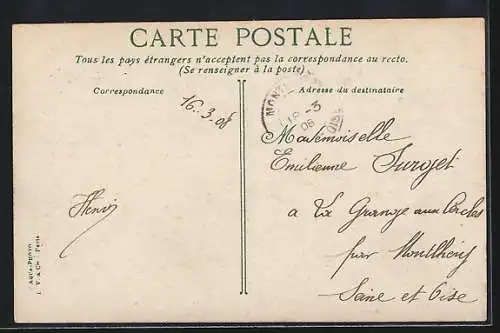 CARTE POSTALE
Tous les pays étrangers n'acceptent pas la correspondance au recto.
(Se renseigner à la poste)
Correspondance
Adresse du destinataire
16.3.08
Mademoiselle
Emilienne Surget
à La Grange aux Cercles
par Montlhéry
Seine et Oise
Henri